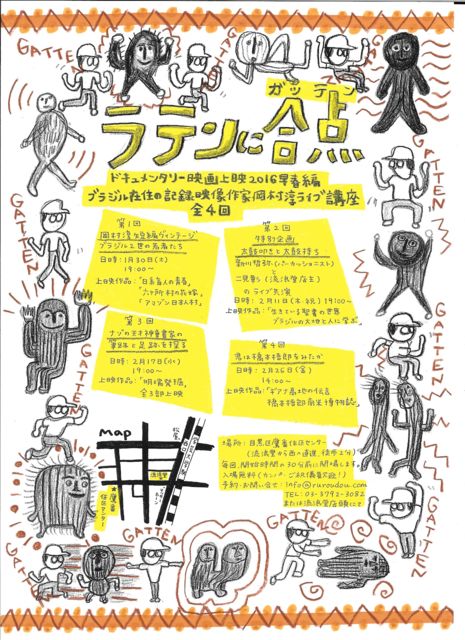 GATTEN
GATTEN
GATTEN
ガッテン
ラテンに合点
ドキュメンタリー映画上映2016早春編
ブラジル在住の記録映像作家岡村淳ライブ講座
全4回
第1回
岡村淳短編ヴィンテージ
ブラジル2世の若者たち
日時：1月30日(土)
19:00〜
上映作品：「日系畜人の青春」
「六ヶ所村の花嫁」
「アマゾン日本人村」
第2回
特別企画
太鼓叩きと太鼓持ち
新川哲弥(パーカッショニスト)
と
二見彰(流浪堂店主)
のライブ共演
日時：2月11日(木・祝)19:00〜
上映作品：「生きている聖書の世界
ブラジルの大地と人に学ぶ」
第3回
ナゾの天才神童画家の
軌跡と足跡を探る
日時：2月17日(水)
19:00〜
上映作品：「明暗発掘」
全3部上映
第4回
君は橋本梧郎をみたか
日時：2月26日(金)
19:00〜
上映作品：「ギアナ高地の伝言
橋本梧郎南米博物誌」
map
流浪堂
鷹番
住区センター
場所：目黒区鷹番住区センター
(流浪堂から西へ直進、徒歩2分)
毎回、開始時間の30分前に開場します。
入場無料(カンパ・ご祝儀大歓迎！)
予約・お問い合せ：info@ruroudou.com
TEL：03-3792-3082
または流浪堂店頭にて
GATTEN
GATTEN
GATTEN
GATTEN
GATTEN
GATTEN
GATTEN
GATTEN
GATTEN